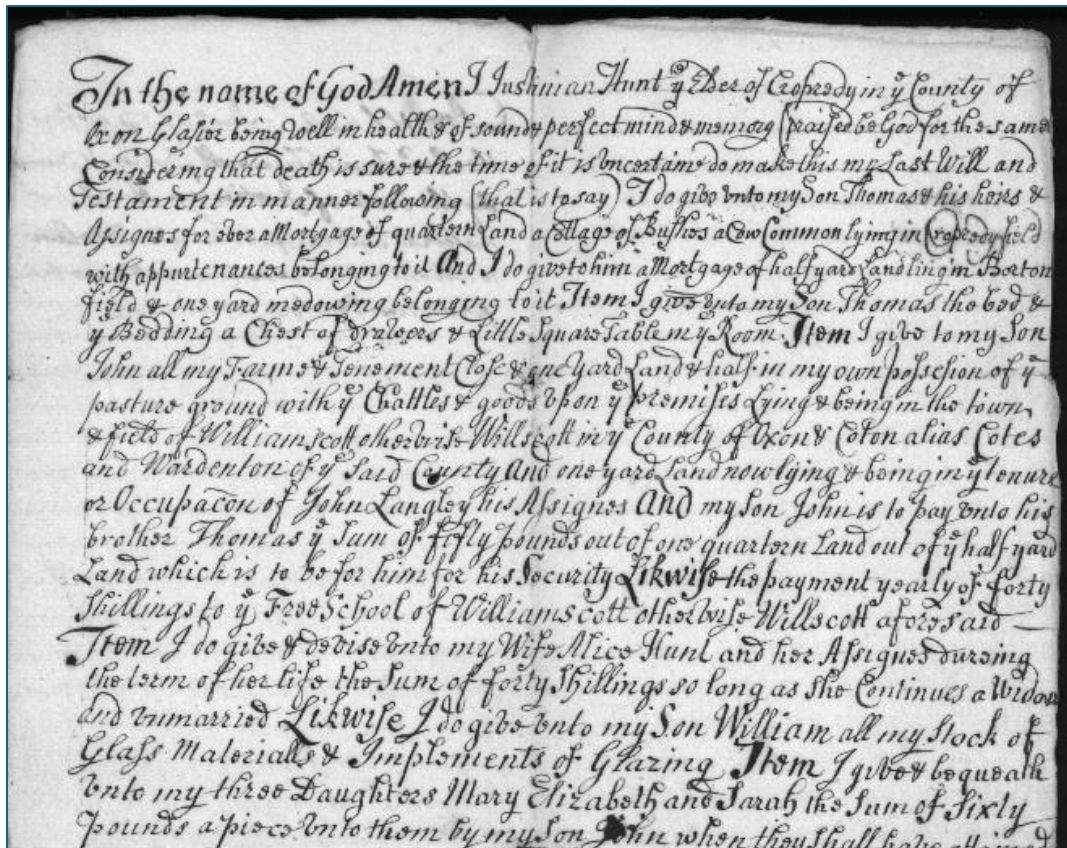 In the name of God Amen I Justinian Hunt ye Elder of Cropredy in ye County of
Oxon Glasier being well in health & of sound & perfect mind & memory (praised be God for the same
Considering that death is sure & the time of it is vncertaine do make this my Last Will and
Testament in manner following (that is to say) I do give vnto my Son Thomas & his heirs &
Assignes for ever a Mortgage of quartern Land a Cottage of Bushes a Cow Common lying in Cropredy field
with appurtenances belonging to it And I do give to him a Mortgage of half yard Land ling in Borton
field & one yard medowing belonging to it Item I give vnto my Son Thomas the bed &
ye Bedding a Chest of drawers & Little Square Table in ye Room Item I give to my Son
John all my Farme & Tenement Close & one Yard Land & half in my own possesion of ye
pasture ground with ye Chattles & goods vpon ye premises Lying & being in the town
& field of Williamscott otherwise Willscott in ye County of Oxon & Coton alias Cotes
and Wardenton of ye Said County And one yard Land now lying & being in ye tenure
or Occupacon of John Langley his Assignes And my son John is to pay vnto his
brother Thomas ye Sum of fifty pounds out of one quartern Land out of ye half yard
Land which is to be for him for his Security Likwise the payment yearly of forty
Shillings to ye Free School of Williamscott otherwise Willscott aforesaid
Item I do give & devise vnto my Wife Alice Hunt and her Assignes dureing
the term of her life the Sum of forty Shillings so long as she Continues a Widow
and vnmarried Likwise I do give vnto my Son William all my stock of
Glass Materialls & Implements of Glazing Item I give & bequeath
vnto my three Daughters Mary Elizabeth and Sarah the Sum of Sixty
pounds a piece vnto them by my Son John when they shall have attained